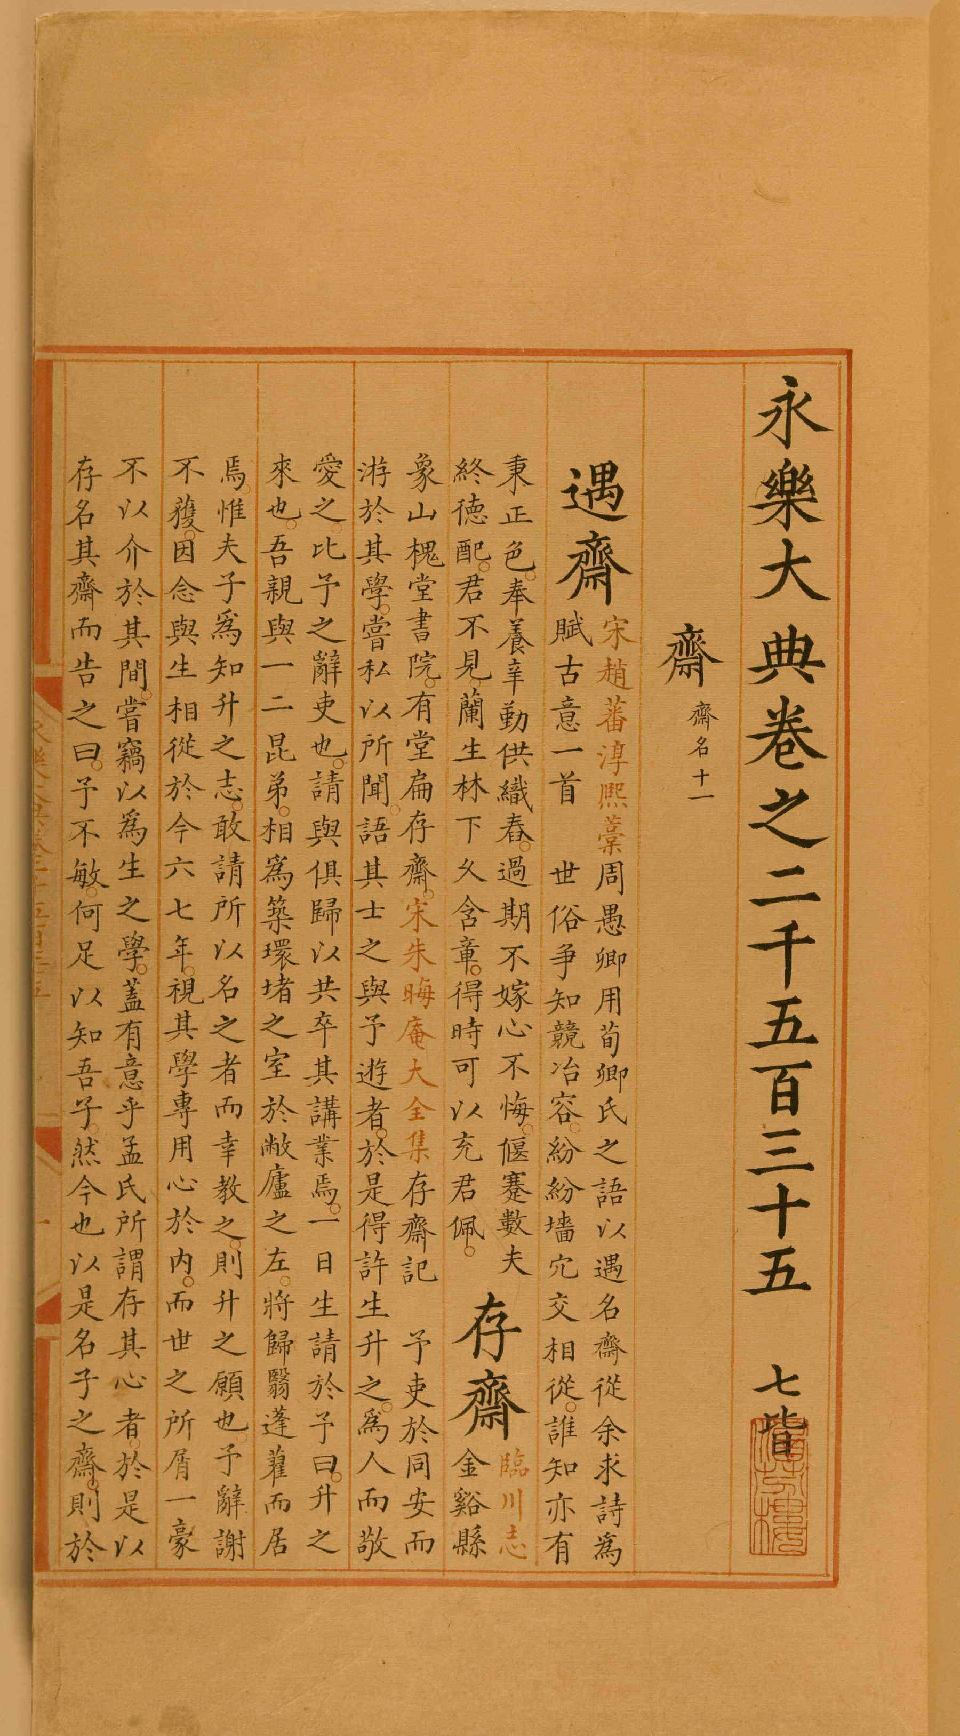 永樂大典卷之二千五百三十五 七皆
齋 齋名十一
遇齋
宋趙蕃淳熙藁周愚卿用荀卿氏之語以遇名齋從余求詩為
賦古意一首 世俗爭知競冶容。紛紛墻穴交相從。誰知亦有
秉正色。奉養辛勤供織舂。過期不嫁心不悔。偃蹇數夫
終德配。君不見。蘭生林下久含章。得時可以充君佩。
存齋
臨川志
金谿縣
象山槐堂書院。有堂扁存齋。宋朱晦庵大全集存齋記 予吏於同安而
游於其學。嘗私以所聞。語其士之與予遊者。於是得許生升之。爲人而敬
愛之比予之辭吏也。請與俱歸以共卒其講業焉。一日生請於予曰。升之
來也。吾親與一二昆弟。相爲築環堵之室於敝廬之左。將歸翳蓬藋而居
焉。惟夫子爲知升之志。敢請所以名之者而幸教之。則升之願也。予辭謝
不獲。因念與生相從於今六七年。視其學專用心於内。而世之所屑一豪
不以介於其間。嘗竊以爲生之學。蓋有意乎孟氏所謂存其心者。於是以
存名其齋而告之曰。予不敏。何足以知吾子。然今也以是名子之齋。則於